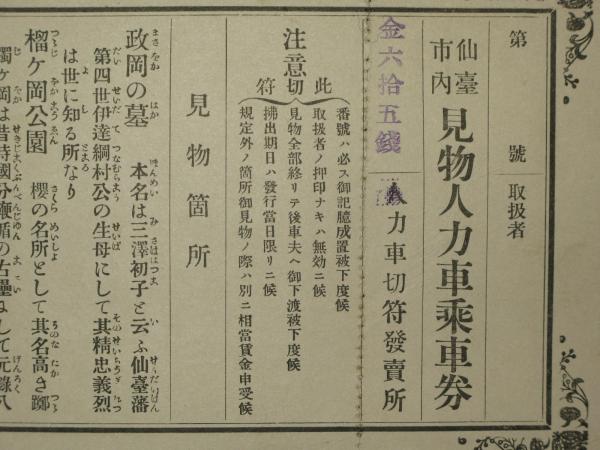 第　　　號　取扱者
仙臺市內　見物人力車乘車券
金六拾五錢　人力車切符發賣所
注意　此切符
番號ハ必ス御記臆成置被下度候
取扱者ノ押印ナキハ無効ニ候
見物全部終リテ後車夫ヘ御下渡被下度候
拂出期日ハ發行當日限リニ候
規定外ノ箇所御見物ノ際ハ別ニ相當賃金申受候
見物箇所
政岡の墓　本名は三澤初子と云ふ仙臺藩
第四世伊達綱村公の生母にして其精忠義烈
は世に知る所なり
榴ケ岡公園　櫻の名所として其名高き躑
躅ケ岡は昔時國分鞭楯の古壘にして元祿八